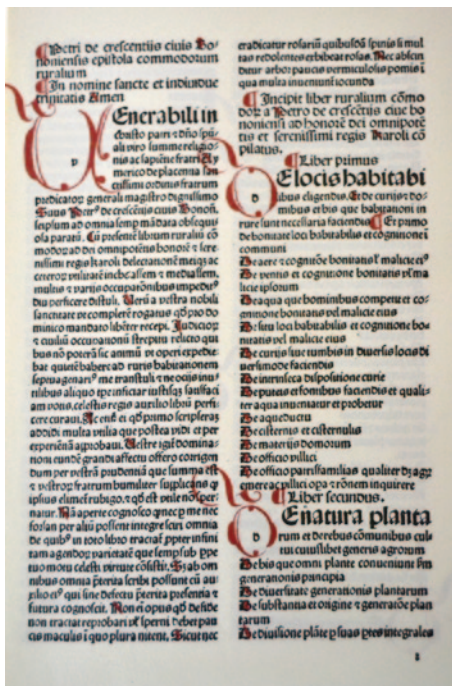 Petri de crescentijs ciuis Bo-
noniensis epistola in commodorum
ruralium
In nomine sancte et indiuidue
trinitatis Amen
Enerabili in
christo patri et dño spũ-
ali viro summe religio-
nis ac sapiẽtie fratri Ay
merico de placentia san
ctissimi ordinis fratrum
predicatoꝝ generali magistro dignissimo
Suus Petr⁹ de crescẽtijs ciuis Bonoñ.
seipsum ad omnia semp mãdata obsequi
osa paratũ. Cũ presentẽ librum ruraliũ cõ
modoꝝ ad dei omnipotẽtis honorẽ et sere
nissimi regis karoli delectationẽ
ceteroꝝ vtilitatẽ
multis et varijs occupatiõnibus impedit⁹
diu perficere distuli. Verũ a vestra nobili
sanctitate vt complerẽ rogatus qd pro do
minico mandato libẽter recepi. Iudicioꝝ
et ciuiliũ occupationũ strepitu relicto qui
bus nõ poterã sic animũ vt operi expedie
bat quietẽ habere ad ruris habitationem
septuagenari⁹ me transtuli
nibilus aliquo
am vous, celestis regis auxilio librũ perfi
cere curaui. Ac eñ et qd primo scripseram
addidi multa vtilia que postea vidi et per
experiẽtiã approbaui. Vestre igit domina-
tioni eundẽ grandi affectu offero corrigen
dum per vestrã prudentiã que summa est
et vestroꝝ fratrum humiliter supplicans
ipsius elimet rubigo. et qd est vtile nõ sper-
natur. Nã aperte cognosco me nec
forsan per aliũ possent integre scire omnia
de quib⁹ in toto libro tractat propter infini
tam agendoꝝ varietatẽ que semp sub
tuo motu celesti virtute cõsistit. Si ab om
nibus omnia preterita scribi possunt cũ au
xilio ei⁹ qui sine defectu preterita presentia et
futura cognoscit. Non eĩ opus qd de fide
non tractat reprobari vel sperni debet pau
cis maculis i quo plura nitent. Sicut nec
eradicatur rosariũ quibusdã spinis si mul
tas redolentes exhibeat rosas. Nec abscin
ditur arbor paucis vermiculosis pomis i
qua multa inueniunt iocunda
Incipit liber ruralium cõmo
doꝝ a Petro de crescẽtijs ciue bo
noniensi ad honorẽ dei omnipotẽ
tis et serenissimi regis Karoli cõ
pilatus.
Liber primus
De locis habitabi
libus eligendis. Et de curijs do-
mibus et his que habitationi in
rure sunt necessaria faciendis Et primo
de bonitate loci habitabilis et cognitione i
communi
De aere et cognitõe bonitatis et malicie ei⁹
De ventis et cognitione bonitatis vel ma
licie ipsorum
De aqua que hominibus competit et co-
gnitione bonitatis vel malicie eius
De situ loci habitabilis et cognitione bo-
nitatis vel malicie eius
De curijs siue tumbis in diuersis locis di
uersimode faciendis
De intrinseca dispositione curie
De puteis et fontibus faciendis et quali-
ter aqua inueniatur et probetur
De aqueductu
De cisternis et cisternulis
De materijs domorum
De officio villici
De officio patrisfamilias qualiter dz agꝝ
emere ac villici opa et rõnem inquirere
Liber secundus.
De natura planta
rum et de rebus cõmunibus cul
tui cuiuslibet generis agrorum
De his que omni plante conueniunt sm
generationis principia
De diuersitate generationis plantarum
De substantia et origine et generatõe plan
tarum
De diuisione plãte p suas ptes integrales
1